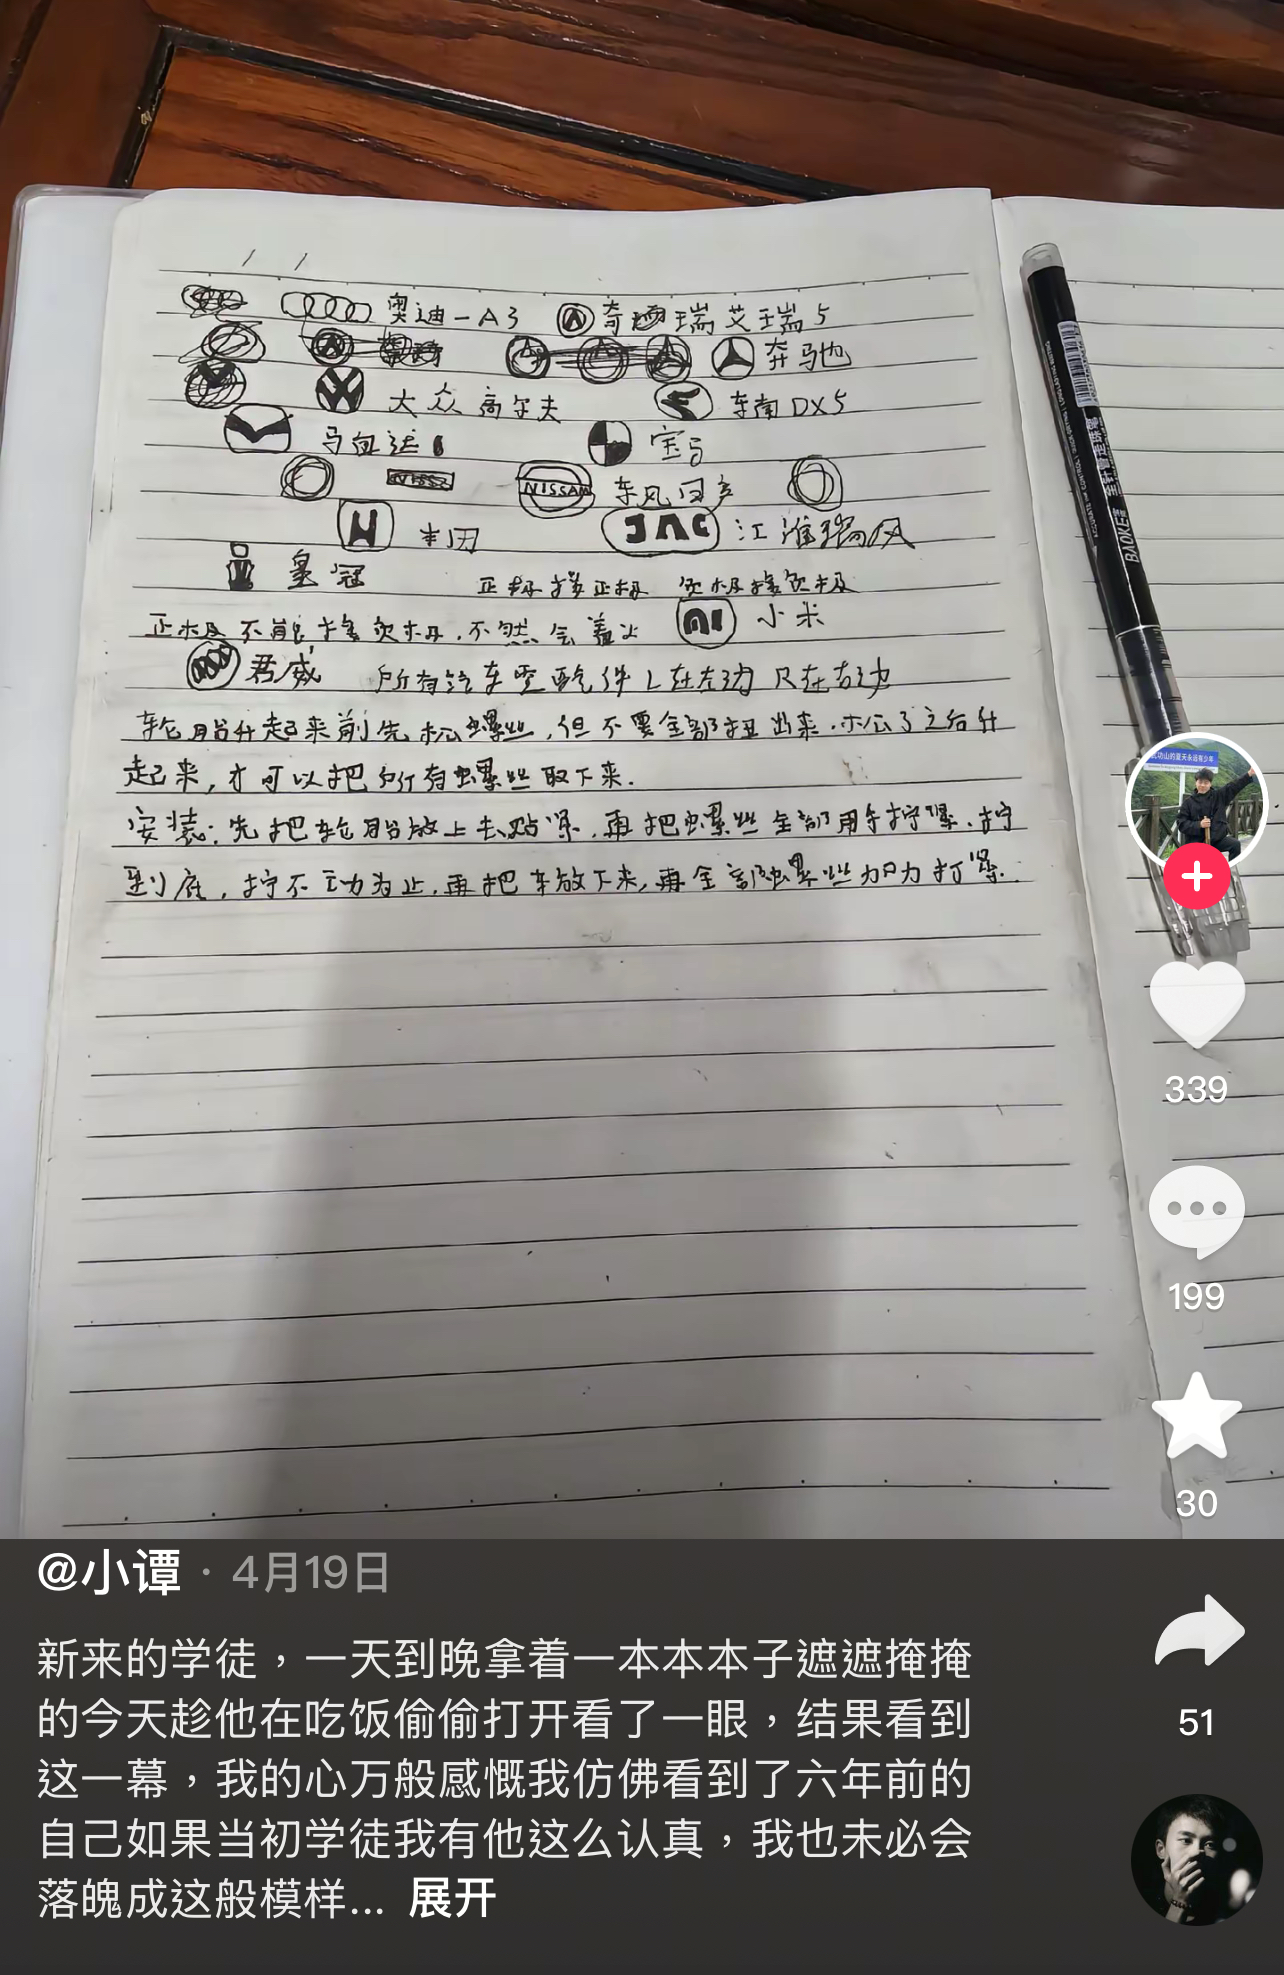 奥迪-A3 奇瑞艾瑞5
奔驰
大众高尔夫 东南DX5
马自达 宝马
NISSAN 东风日产
丰田 JAC 江淮瑞风
皇冠 正极接正极 负极接负极
正极不能接负极.不然会着火 小米
君威 所有汽车零配件L在左边 R在右边
轮胎升起来前先松螺丝,但不要全部扭出来.松了之后升
起来,才可以把所有螺丝取下来.
安装:先把轮胎放上去贴紧.再把螺丝全部用手拧紧.拧
到底,拧不动为止.再把车放下来,再全部螺丝加力打紧.
BAOKE宝克
武功山的夏天永远有少年
339
199
30
@小谭 · 4月19日
新来的学徒，一天到晚拿着一本本本子遮遮掩掩
的今天趁他在吃饭偷偷打开看了一眼，结果看到
这一幕，我的心万般感慨我仿佛看到了六年前的
自己如果当初学徒我有他这么认真，我也未必会
落魄成这般模样... 展开
51